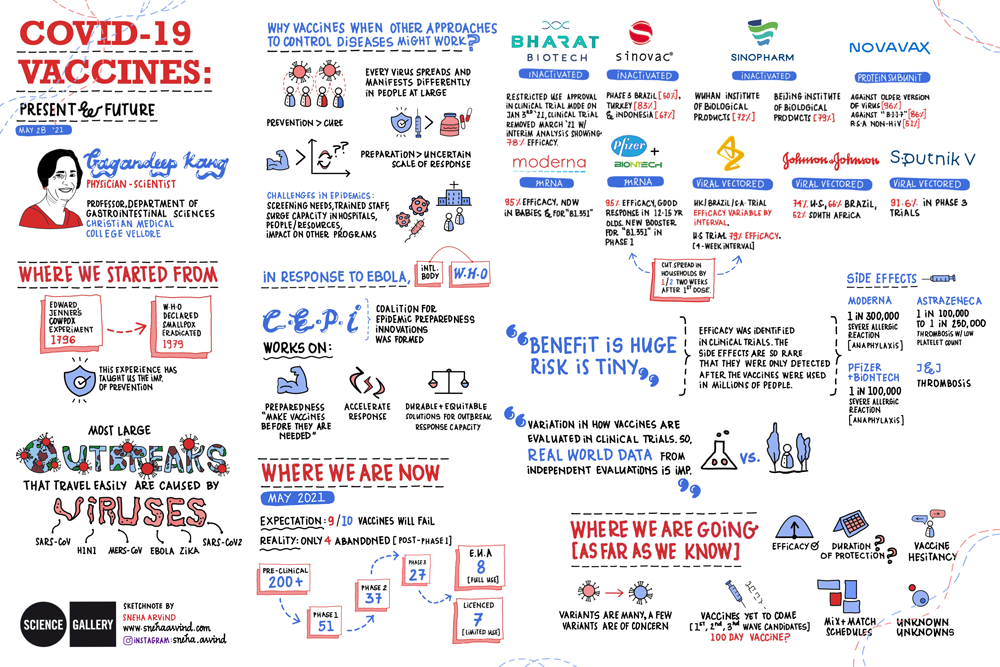 COVID-19
VACCINES:
PRESENT & FUTURE
MAY 28 '21
Gagandeep Kang
PHYSICIAN-SCIENTIST
PROFESSOR, DEPARTMENT OF
GASTROINTESTINAL SCIENCES
CHRISTIAN MEDICAL
COLLEGE VELLORE
WHERE WE STARTED FROM
EDWARD
JENNER'S
COWPOX
EXPERIMENT
1796
W·H·O
DECLARED
SMALLPOX
ERADICATED
1979
THIS EXPERIENCE HAS
TAUGHT US THE IMP.
OF PREVENTION
MOST LARGE
OUTBREAKS
THAT TRAVEL EASILY ARE CAUSED BY
VIRUSES
SARS-CoV
H1N1
MERS-CoV
EBOLA
ZIKA
SARS-CoV2
SCIENCE
GALLERY
SKETCHNOTE BY
SNEHA ARVIND
www.snehaarvind.com
INSTAGRAM: sneha.arvind
WHY VACCINES WHEN OTHER APPROACHES
TO CONTROL DISEASES MIGHT WORK?
EVERY VIRUS SPREADS AND
MANIFESTS DIFFERENTLY
IN PEOPLE AT LARGE
PREVENTION > CURE
>
> ??
PREPARATION > UNCERTAIN
SCALE OF RESPONSE
CHALLENGES IN EPIDEMICS:
SCREENING NEEDS, TRAINED STAFF,
SURGE CAPACITY IN HOSPITALS,
PEOPLE/RESOURCES,
IMPACT ON OTHER PROGRAMS
IN RESPONSE TO EBOLA,
INTL.
BODY
W·H·O
C.E.P.I
COALITION FOR
EPIDEMIC PREPAREDNESS
INNOVATIONS
WAS FORMED
WORKS ON:
PREPAREDNESS
"MAKE VACCINES
BEFORE THEY ARE
NEEDED"
ACCELERATE
RESPONSE
DURABLE + EQUITABLE
SOLUTIONS FOR OUTBREAK
RESPONSE CAPACITY
WHERE WE ARE NOW
MAY 2021
EXPECTATION: 9/10 VACCINES WILL FAIL
REALITY: ONLY 4 ABANDONED [POST-PHASE 1]
PRE-CLINICAL
200+
PHASE 1
51
PHASE 2
37
PHASE 3
27
E.U.A
8
[FULL USE]
LICENCED
7
[LIMITED USE]
BHARAT
BIOTECH
INACTIVATED
RESTRICTED USE APPROVAL
IN CLINICAL TRIAL MODE ON
JAN 3RD '21, CLINICAL TRIAL
REMOVED MARCH '21 W/
INTERIM ANALYSIS SHOWING
78% EFFICACY.
sinovac
INACTIVATED
PHASE 3 BRAZIL [50%],
TURKEY [83%]
& INDONESIA [67%]
SINOPHARM
INACTIVATED
WUHAN INSTITUTE
OF BIOLOGICAL
PRODUCTS [72%]
BEIJING INSTITUTE
OF BIOLOGICAL
PRODUCTS [79%]
NOVAVAX
PROTEIN SUBUNIT
AGAINST OLDER VERSION
OF VIRUS [96%]
AGAINST "B·1·1·7" [86%]
R·S·A NON-HIV [51%]
moderna
mRNA
95% EFFICACY. NOW
IN BABIES & FOR "B1.351"
Pfizer +
BIONTECH
mRNA
95% EFFICACY, GOOD
RESPONSE IN 12-15 YR
OLDS. NEW BOOSTER
FOR "B1.351" IN
PHASE 1
VIRAL VECTORED
UK/BRAZIL/S.A TRIAL
EFFICACY VARIABLE BY
INTERVAL.
U·S TRIAL 79% EFFICACY.
[4-WEEK INTERVAL]
Johnson & Johnson
VIRAL VECTORED
74% U.S, 66% BRAZIL,
52% SOUTH AFRICA
Sputnik V
VIRAL VECTORED
91.6% IN PHASE 3
TRIALS
CUT SPREAD IN
HOUSEHOLDS BY
1/2 TWO WEEKS
AFTER 1ST DOSE.
"BENEFIT IS HUGE
RISK IS TINY"
EFFICACY WAS IDENTIFIED
IN CLINICAL TRIALS. THE
SIDE EFFECTS ARE SO RARE
THAT THEY WERE ONLY DETECTED
AFTER THE VACCINES WERE USED
IN MILLIONS OF PEOPLE.
SIDE EFFECTS
MODERNA
1 IN 300,000
SEVERE ALLERGIC
REACTION
[ANAPHYLAXIS]
ASTRAZENECA
1 IN 100,000
TO 1 IN 250,000
THROMBOSIS W/ LOW
PLATELET COUNT
PFIZER
+BIONTECH
1 IN 100,000
SEVERE ALLERGIC
REACTION
[ANAPHYLAXIS]
J&J
THROMBOSIS
"VARIATION IN HOW VACCINES ARE
EVALUATED IN CLINICAL TRIALS. SO,
REAL WORLD DATA FROM
INDEPENDENT EVALUATIONS IS IMP."
VS.
WHERE WE ARE GOING
[AS FAR AS WE KNOW]
EFFICACY
DURATION
OF PROTECTION?
VACCINE
HESITANCY
VARIANTS ARE MANY, A FEW
VARIANTS ARE OF CONCERN
VACCINES YET TO COME
[1st, 2nd, 3rd WAVE CANDIDATES]
100 DAY VACCINE?
MIX+MATCH
SCHEDULES
UNKNOWN
UNKNOWNS